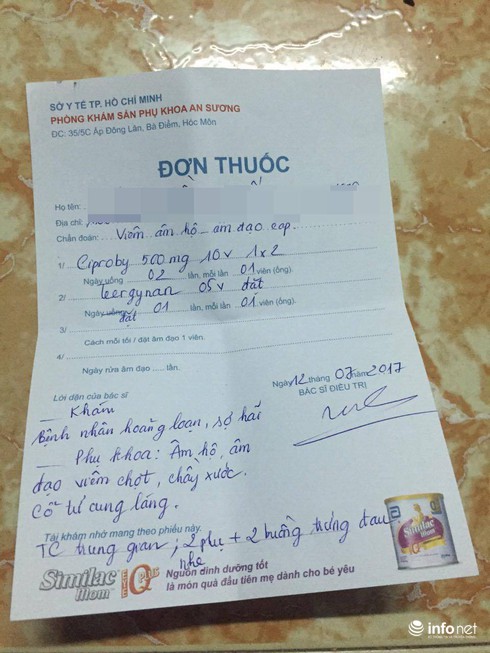 SỞ Y TẾ TP. HỒ CHÍ MINH
PHÒNG KHÁM SẢN PHỤ KHOA AN SƯƠNG
ĐC: 35/5C Ấp Đông Lân, Bà Điểm, Hóc Môn
ĐƠN THUỐC
Họ tên:
Địa chỉ:
Chẩn đoán: Viêm âm hộ - âm đạo cấp.
1/ Ciproby 500 mg 10v 1x2
Ngày uống 02 lần, mỗi lần 01 viên (ống).
2/ tergynan 05v đặt
Ngày uống đặt 01 lần, mỗi lần 01 viên (ống).
3/
Cách mỗi tối / đặt âm đạo 1 viên.
4/
Ngày rửa âm đạo ..... lần.
Ngày 12 tháng 07 năm 2017
BÁC SĨ ĐIỀU TRỊ
Lời dặn của bác sĩ
- Khám
Bệnh nhân hoảng loạn, sợ hãi
- Phụ khoa: Âm hộ, âm
đạo viêm chợt, chầy xước.
Cổ tử cung láng.
Tái khám nhớ mang theo phiếu này.
TC trung gian; 2 phụ + 2 buồng trứng đau
nhẹ
Similac Mom EYE IQ PLUS
Nguồn dinh dưỡng tốt
là món quà đầu tiên mẹ dành cho bé yêu
Similac Mom
infonet